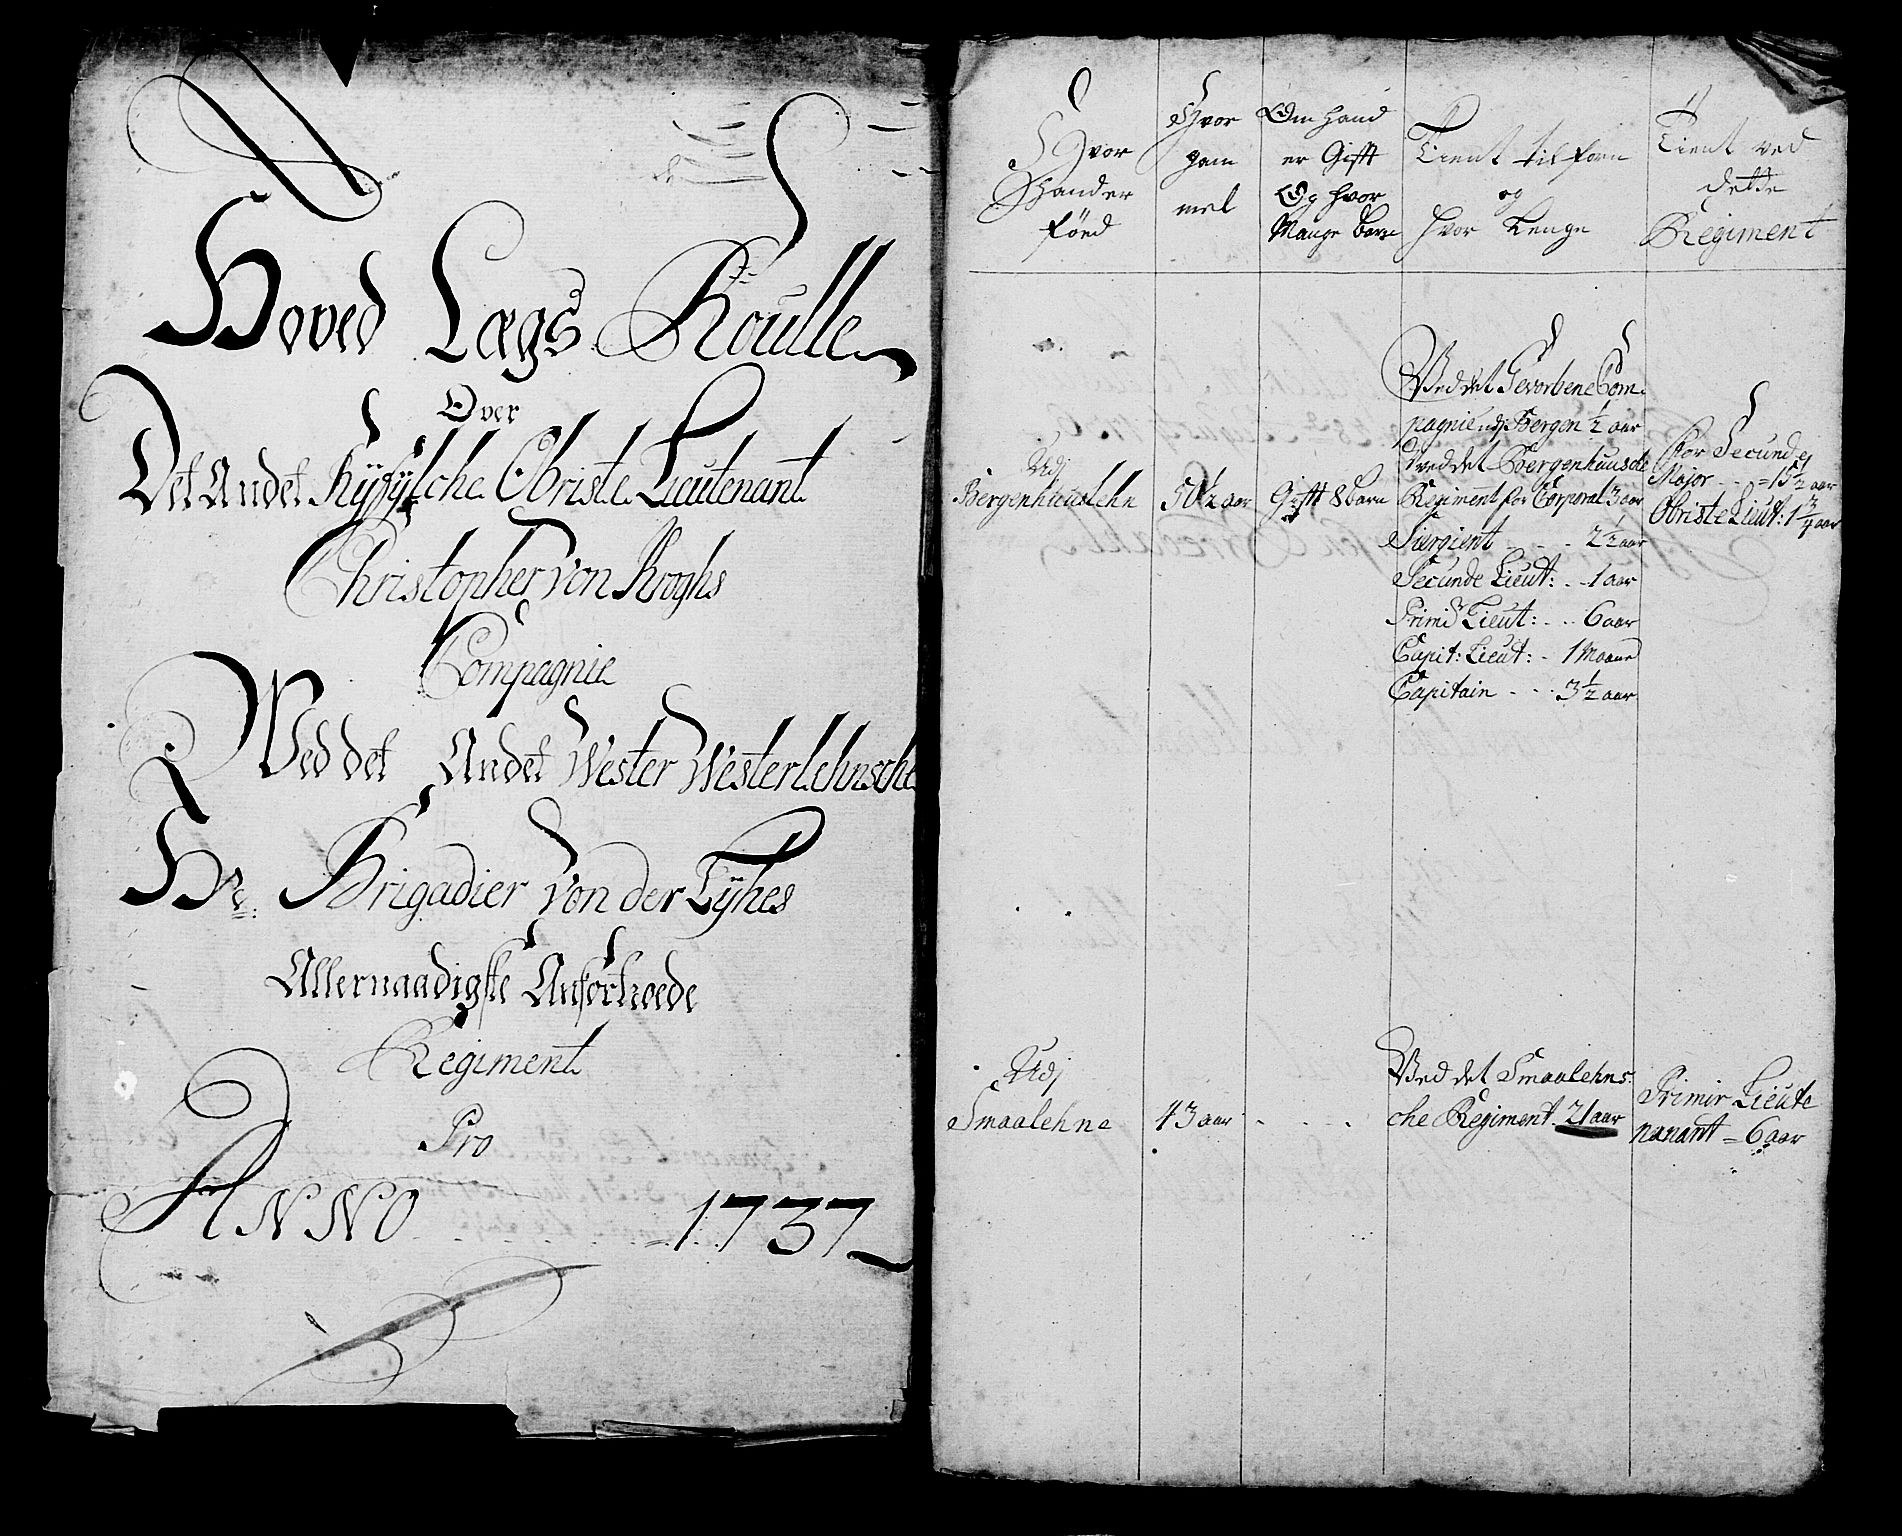 Hoved Lægs Roulle
Over
Det Andet Ryfylche Obriste Lieutenant
Christopher von Kroghs
Compagnie
Ved det Andet Wester Westerlehnsche
Hr: Brigadier von der Tyhes
Allernaadigste Anfortroede
Regiment
Pro
ANNO 1737
Hvor
Hand er
föed
Hvor
gam
mel
Om hand
er Gifft
Og hvor
Mange børn
Tient tilforn
og
hvor Lenge
Tient ved
dette
Regiment
Udj
Bergenhuuslehn
50½ aar
Gifft 8 børn
Ved det Gevorbene Com-
pagnie udj Bergen ½ aar
Ved det Bergenhuusche
Regiment for Corporal 3 aar
Siergient - - - 2½ aar
Secunde Lieut: - - 1 aar
Primr Lieut: - - 6 aar
Capit: Lieut: - 1 Moaned
Capitain - - - 3½ aar
For Secunde
Major - - = 15½ aar
Obriste Lieut: 1¾ aar
Udj
Smaalehne
43 aar
- - - -
Ved det Smaalehns-
che Regiment 21 aar
Primir Lieute
nanant = 6 aar